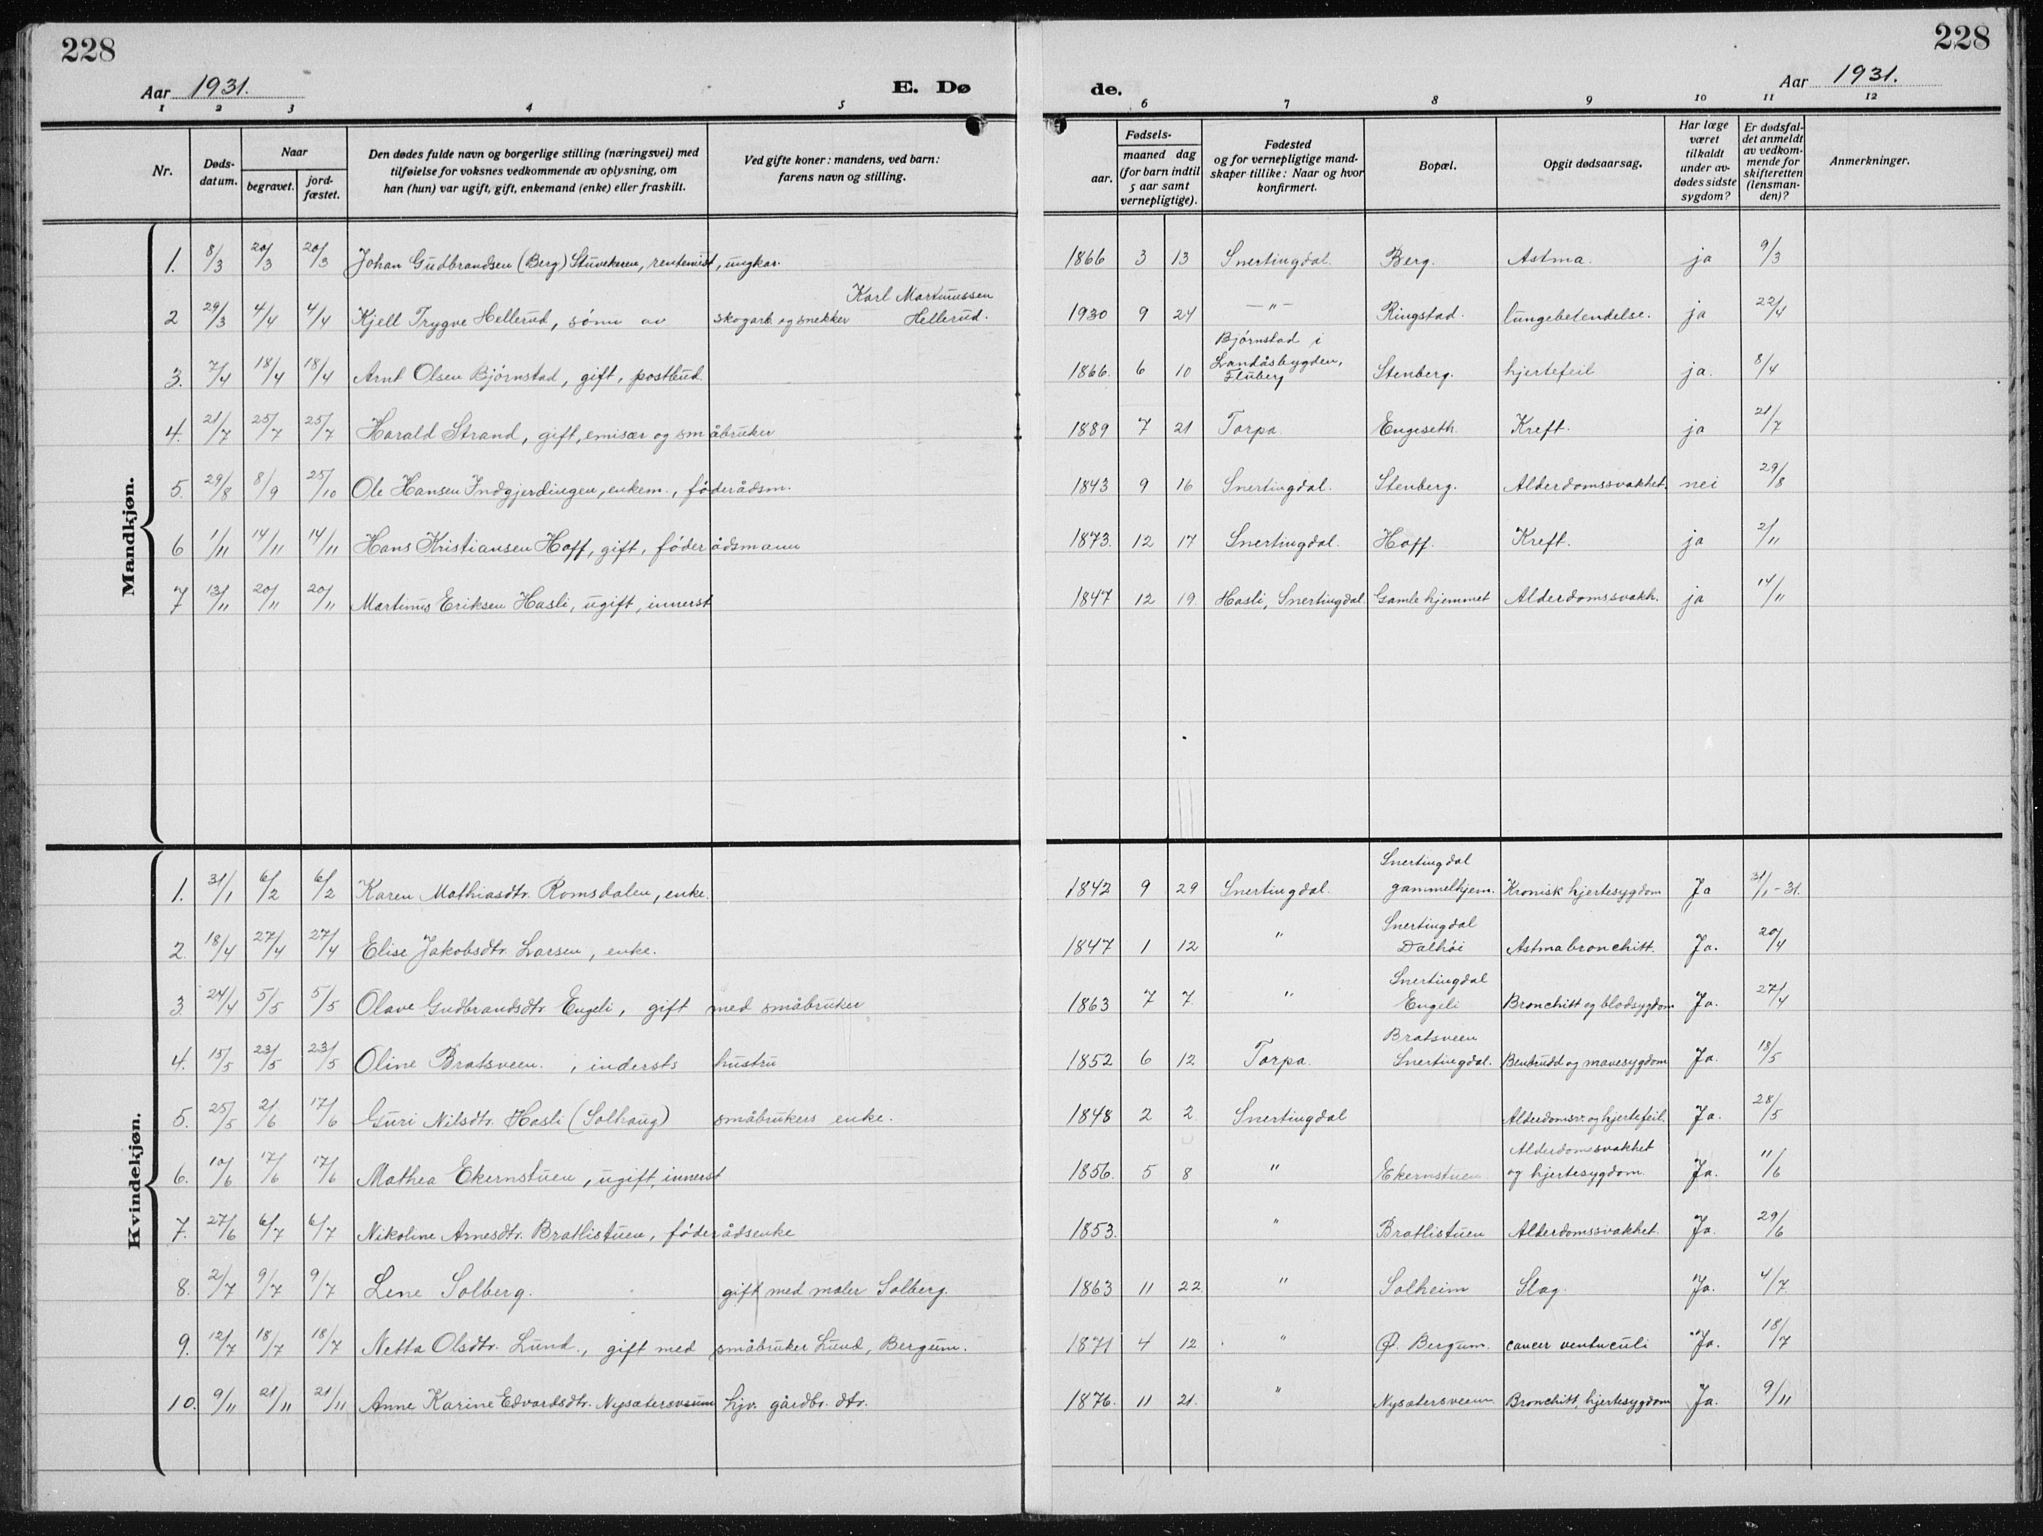 228
228
Aar 1931.
E. Dø
de.
Aar 1931.
1 2 3 4 5 6 7 8 9 10 11 12
Nr.
Døds-
datum.
Naar
begravet.
jord-
fæstet.
Den dødes fulde navn og borgerlige stilling (næringsvei) med
tilføielse for voksnes vedkommende av oplysning, om
han (hun) var ugift, gift, enkemand (enke) eller fraskilt.
Ved gifte koner: mandens, ved barn:
farens navn og stilling.
Fødsels-
aar.
maaned dag
(for barn indtil
5 aar samt
vernepligtige).
Fødested
og for vernepligtige mand-
skaper tillike: Naar og hvor
konfirmert.
Bopæl.
Opgit dødsaarsag.
Har læge
været
tilkaldt
under av-
dødes sidste
sygdom?
Er dødsfal-
det anmeldt
av vedkom-
mende for
skifteretten
(lensman-
den)?
Anmerkninger.
Mandkjøn.
1. 8/3 20/3 20/3 Johan Gudbrandsen (Berg) Stuvekeren, rentenist, ungkar. 1866 3 13 Snertingdal. Berg. Astma. ja 9/3
Karl Martinussen
2 29/3 4/4 4/4 Kjell Trygve Hellerud, sønn av skogarb. og snekker Hellerud. 1930 9 24 — " — Ringstad. lungebetendelse. ja 22/4
Bjørnstad i
Landåsbygden,
3. 7/4 18/4 18/4 Arnt Olsen Bjørnstad, gift, postbud. 1866. 6 10 Fluberg Stenberg. hjertefeil ja. 8/4
4. 21/7 25/7 25/7 Harald Strand, gift, emisær og småbruker 1889 7 21 Torpa. Engeseth. Kreft. ja 21/7
5. 29/8 8/9 25/10 Ole Hansen Indgjerdingen, enkem., føderådsm. 1843 9 16 Snertingdal. Stenberg. Alderdomssvakhet. nei 29/8
6 1/11 14/11 14/11 Hans Kristiansen Hoff, gift, føderådsmann 1873. 12 17 Snertingdal. Hoff. Kreft. ja 2/11
7 13/11 20/11 20/11 Martinus Eriksen Hasli, ugift, innerst 1847 12 19 Hasli, Snertingdal Gamlehjemmet Alderdomssvakh. ja 14/11
Kvindekjøn.
Snertingdal
1. 31/1 6/2 6/2 Karen Mathiasdtr. Romsdalen, enke. 1842 9 29 Snertingdal. gammelhjem. Kronisk hjertesygdom Ja 31/1-31.
Snertingdal
2. 18/4 27/4 27/4 Elise Jakobsdtr. Larsen, enke. 1847 1 12 " Dalhøi Astmabronchitt. Ja. 20/4
Snertingdal
3 24/4 5/5 5/5 Olave Gudbrandsdtr. Engeli, gift med småbruker 1863 7 7. " Engeli Bronchitt og blodsygdom Ja. 27/4
Bratsveen
4. 15/5 23/5 23/5 Oline Bratsveen, indersts hustru 1852 6 12 Torpa. Snertingdal. Benbrudd og mavesygdom Ja. 18/5
5. 25/5 2/6 17/6 Guri Nilsdtr. Hasli (Solhaug) småbrukers enke. 1848 2 2. Snertingdal Alderdomssv. og hjertefeil. Ja. 28/5
Alderdomssvakhet
6. 10/6 17/6 17/6 Mathea Ekernstuen, ugift, innerst 1856. 5 8 " Ekernstuen og hjertesygdom. Ja. 11/6
7. 27/6 6/7 6/7 Nikoline Arnesdtr. Bratlistuen, føderådsenke 1853. " Bratlistuen Alderdomssvakhet. Ja. 29/6
8. 2/7 9/7 9/7 Lene Solberg. gift med maler Solberg. 1863 11 22 " Solheim Slag. Ja. 4/7
9. 12/7 18/7 18/7 Netta Olsdtr. Lund., gift med småbruker Lund, Bergum. 1871 4 12 " Ø. Bergum. cancer ventriculi Ja. 18/7
10. 9/11 21/11 21/11 Anne Karine Edvardsdtr. Nysætersveen hjv. gårdbr. dtr. 1876. 11 21. " Nysætersveen Bronchitt, hjertesygdom Ja. 9/11